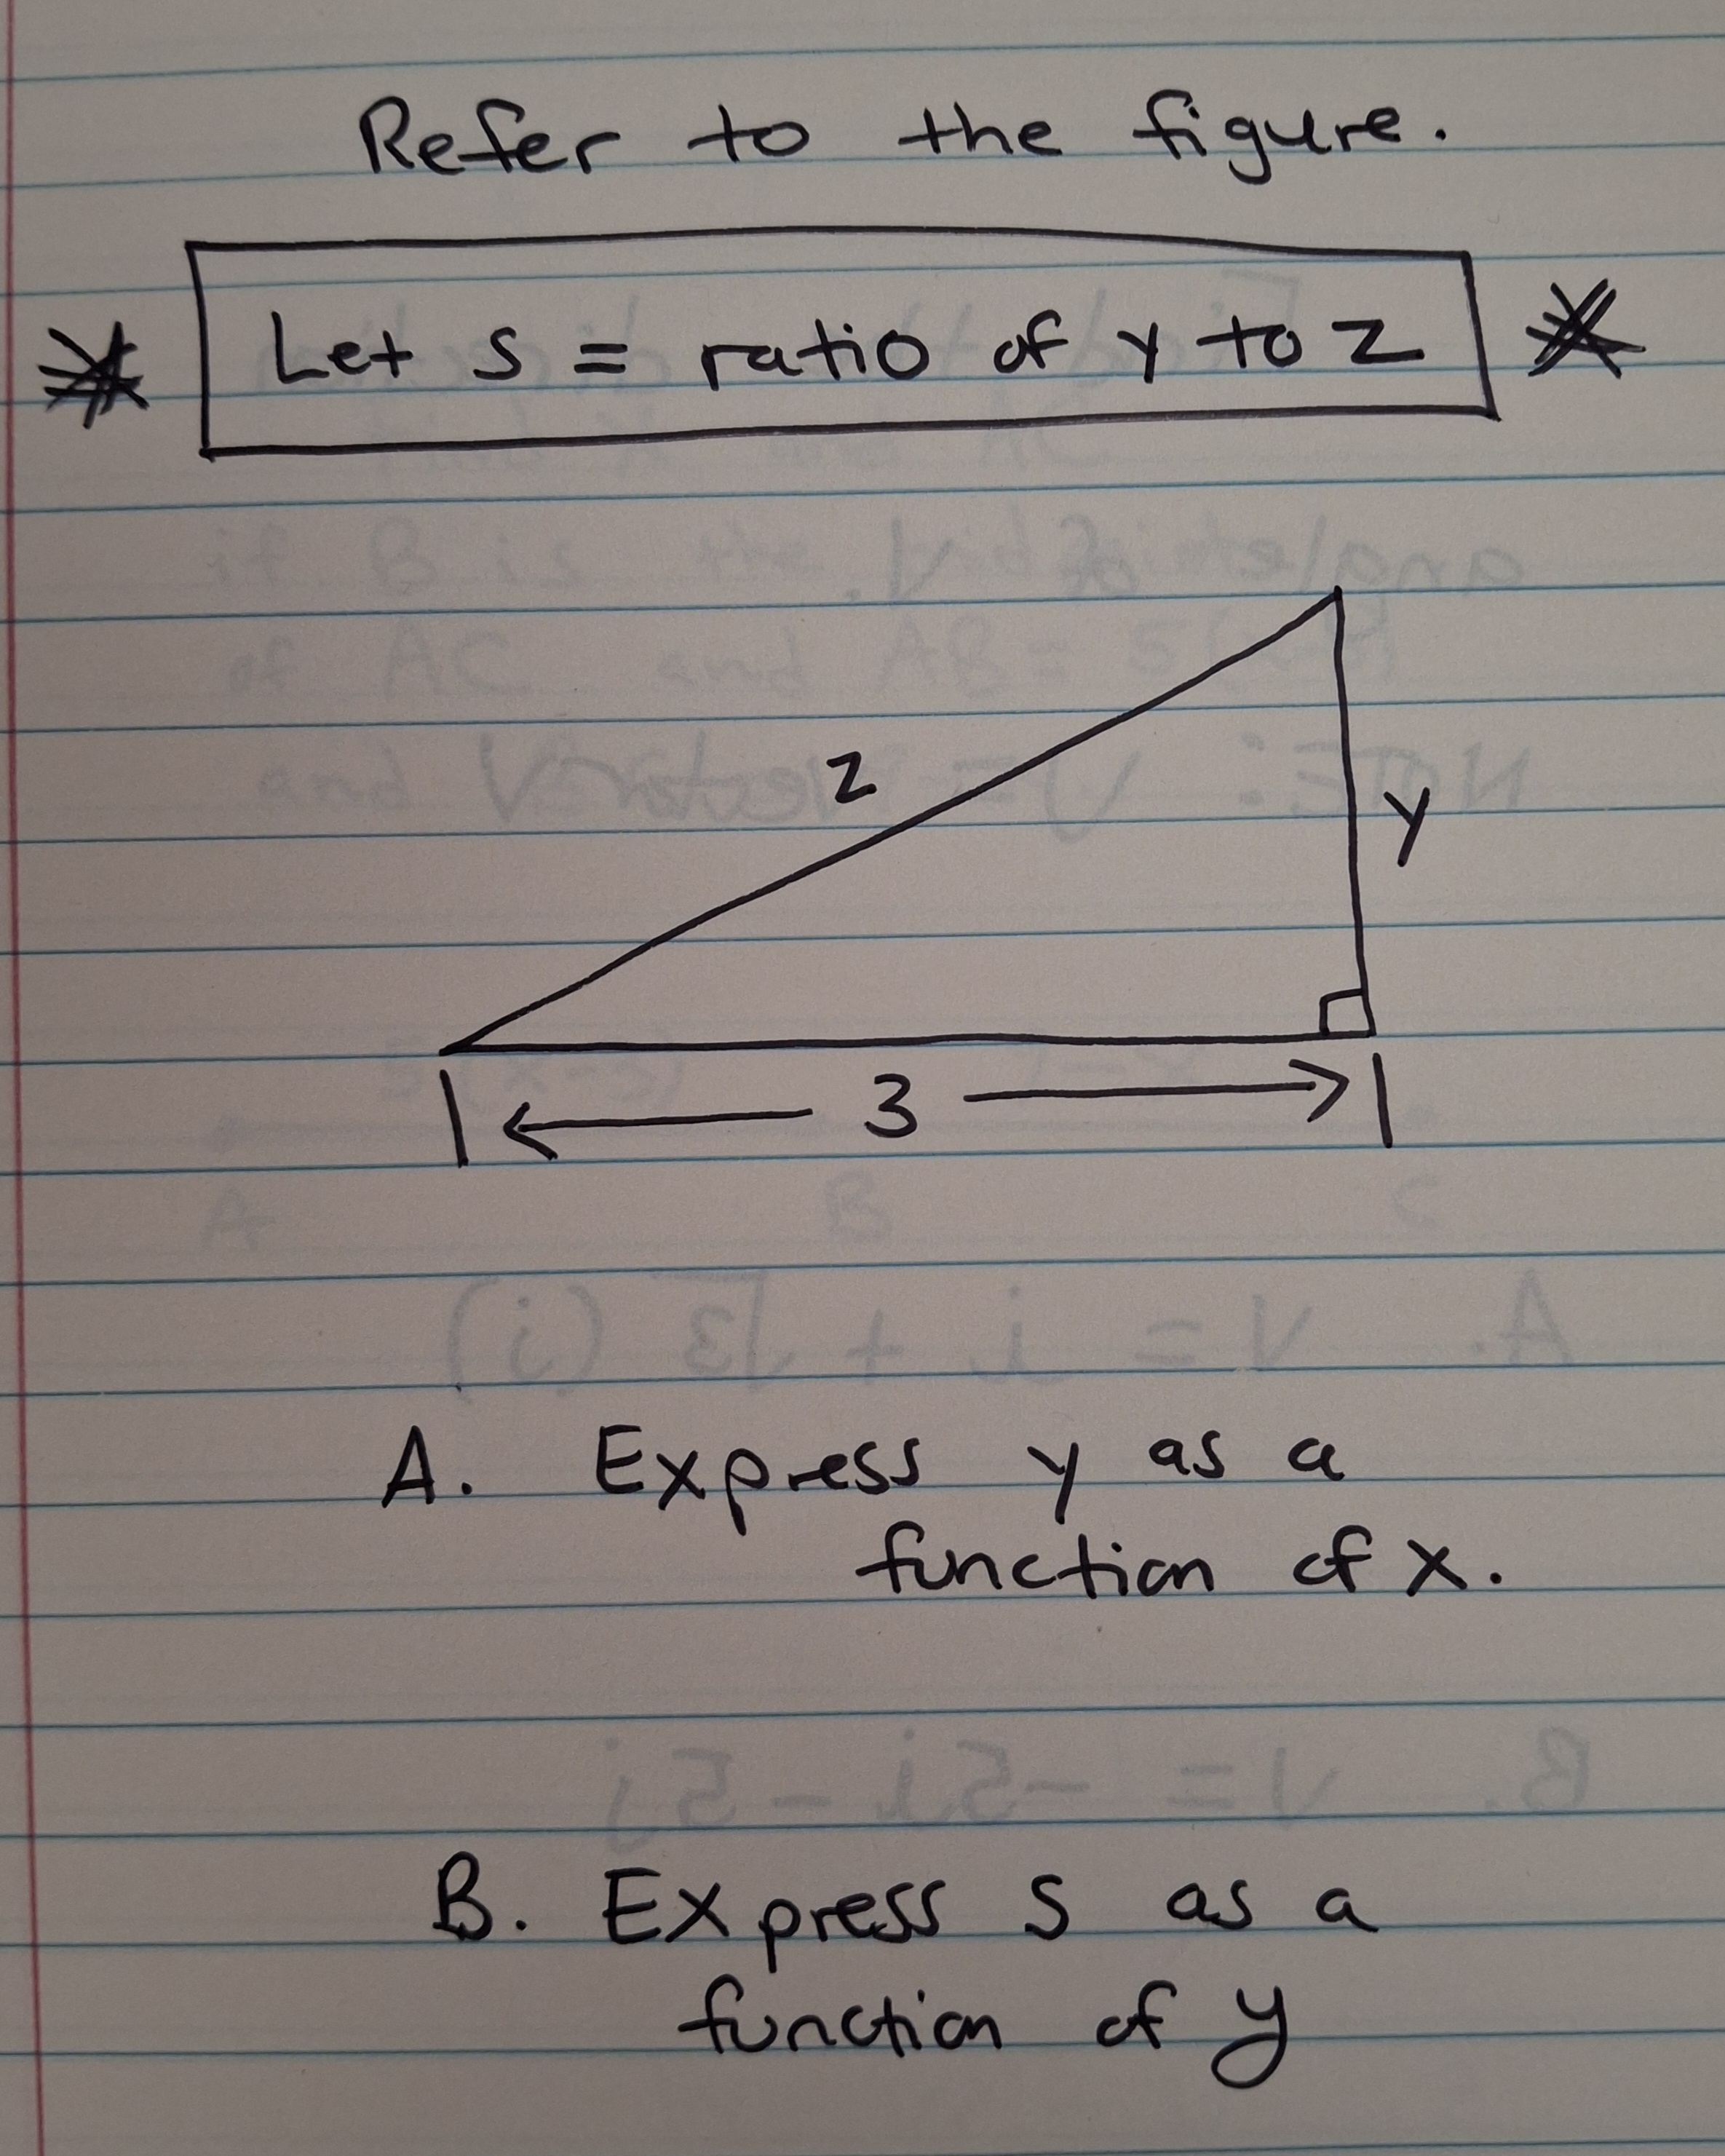 Refer to the figure.
Let s = ratio of y to z
z
y
3
A. Express y as a
function of x.
B. Express s as a
function of y